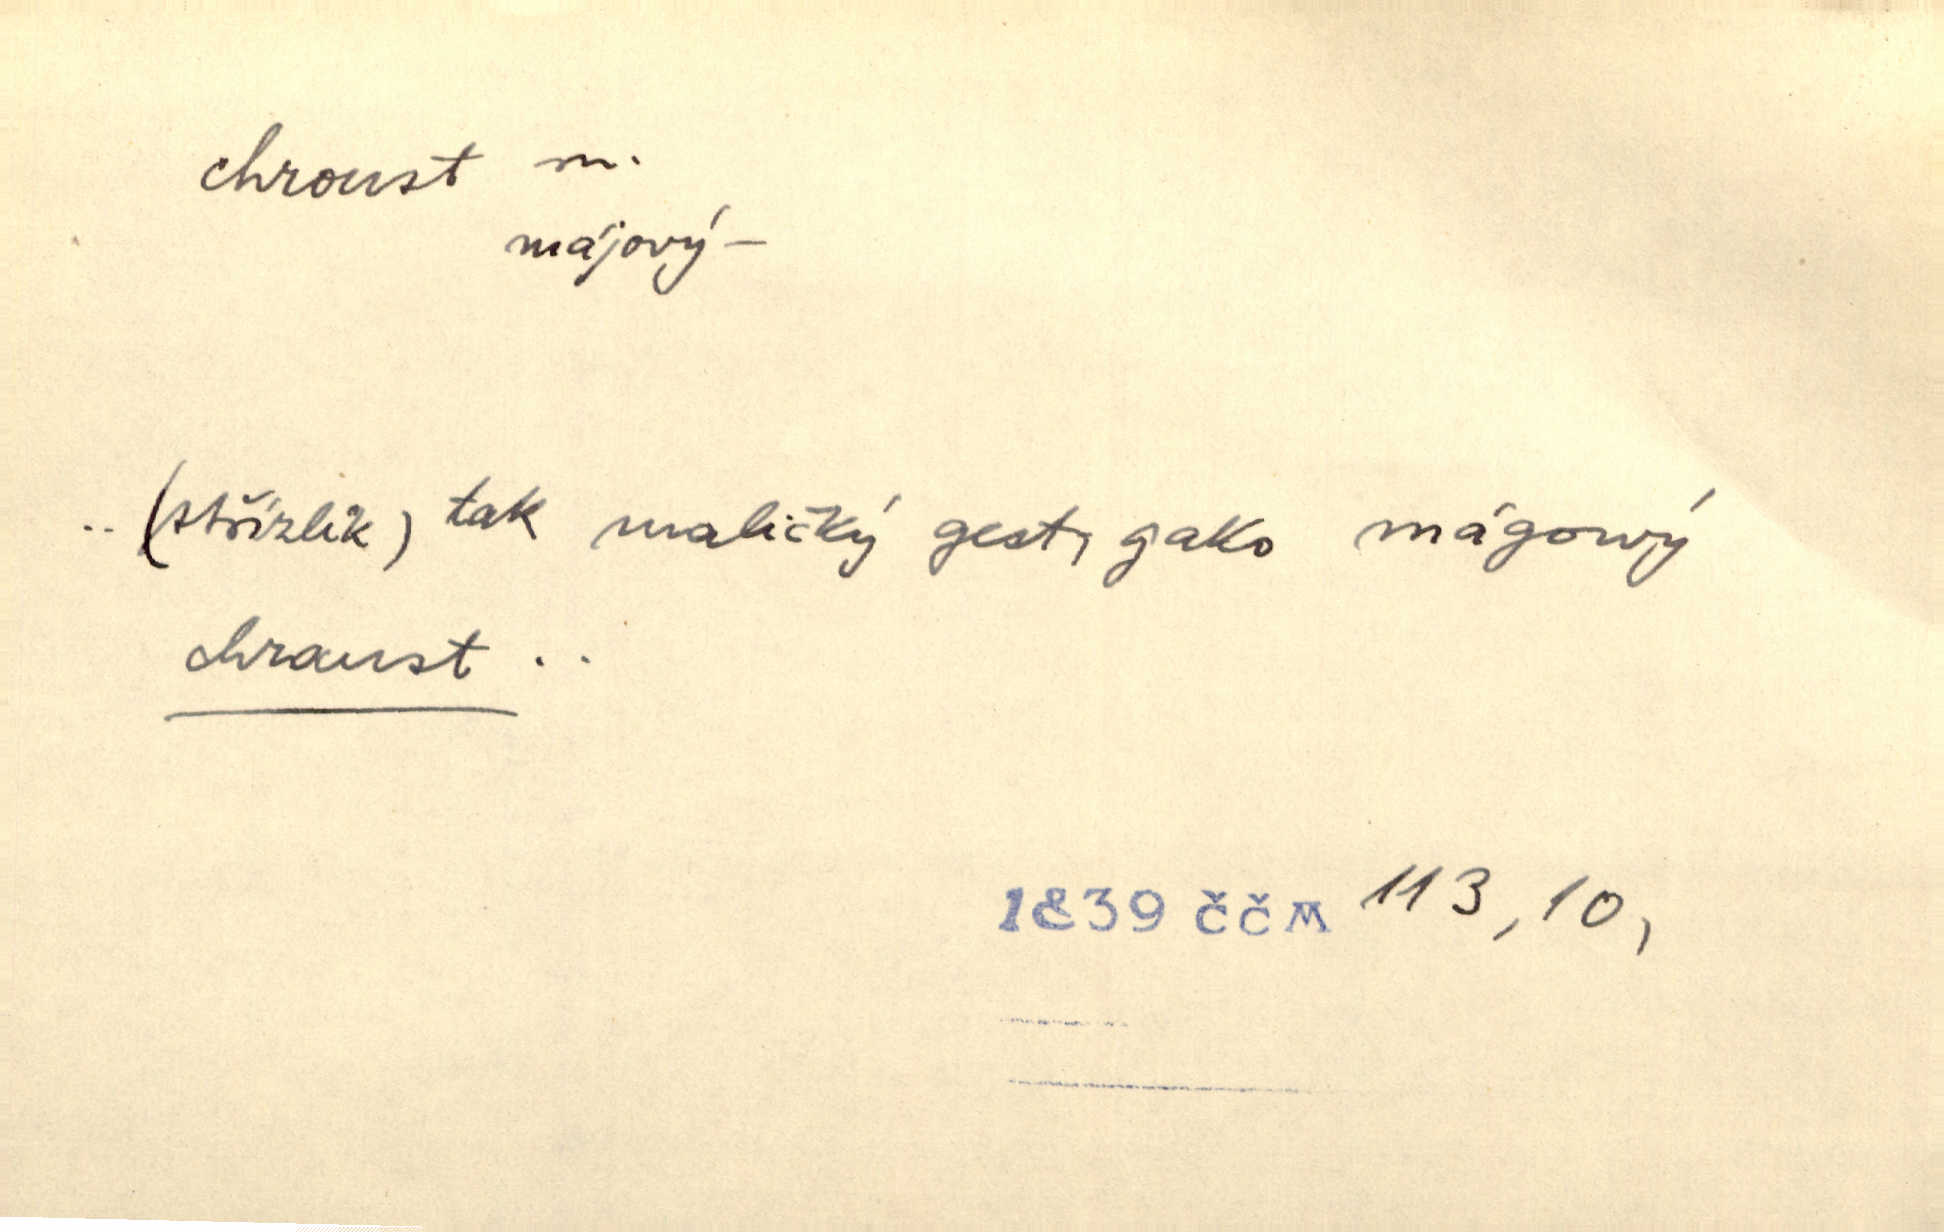 chroust m.
májový –
.. (střízlík) tak maličký gest, gako mágowý
chraust ..
1839 ččm 113, 10,